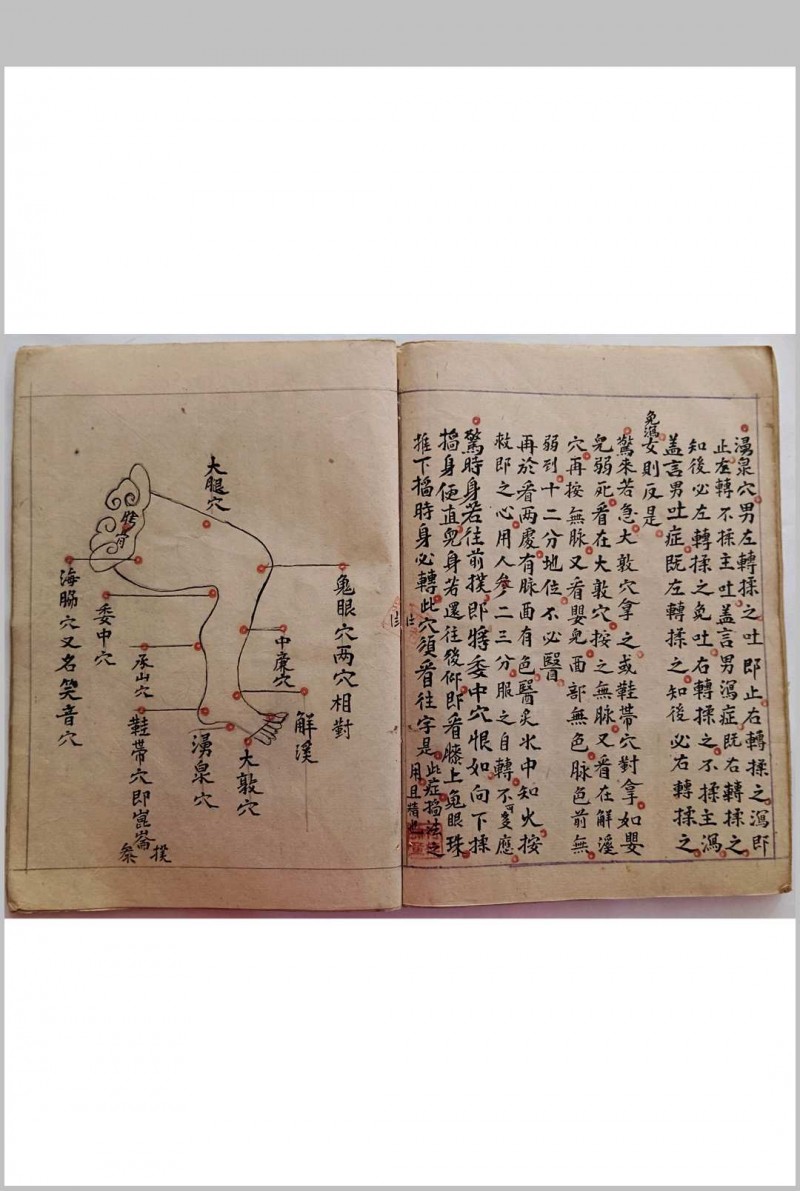 湧泉穴男左轉揉之吐即止右轉揉之瀉即
止左轉不揉主吐盖言男瀉症既右轉揉之
知後必左轉揉之免吐右轉揉之不揉主瀉
盖言男吐症既左轉揉之知後必右轉揉之
免瀉女則反是
驚來若急大敦穴拿之或鞋帶穴對拿如嬰
兒弱死看在大敦穴按之無脉又看在解溪
穴再按無脉又看嬰兒面部無色脉色前無
弱到十二分地位不必醫
再於看两處有脉面有色醫炙水中知火按
救即之心用人參二三分服之自轉不可憂應
驚時身若往前撲即將委中穴恨如向下揉
搐身便直兒身若還往後仰即看膝上鬼眼珠
推下搐時身必轉此穴須看往字是此症搐法之
用且精
大腿穴
膀胱
鬼眼穴两穴相對
中廉穴
解溪
大敦穴
湧泉穴
鞋帶穴即崑崙
撲參
承山穴
委中穴
海腸穴又名笑音穴